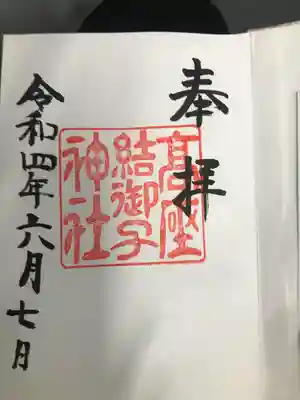 奉拝
高座
結御子
神社
令和四年六月七日